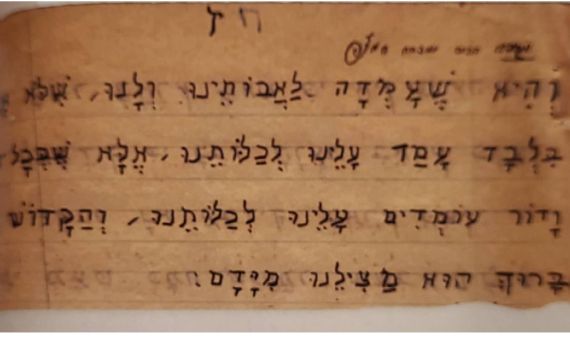 וְהִיא שֶׁעָמְדָה לַאֲבוֹתֵינוּ וְלָנוּ, שֶׁלֹא
בִּלְבָד עָמַד עָלֵינוּ לְכַלוֹתֵנוּ, אֶלָא שֶׁבְּכָל
וָדוֹר עוֹמְדִים עָלֵינוּ לְכַלוֹתֵנוּ, וְהַקָדוֹשׁ
בָּרוּךְ הוּא מַצִילֵנוּ מִיָדָם.